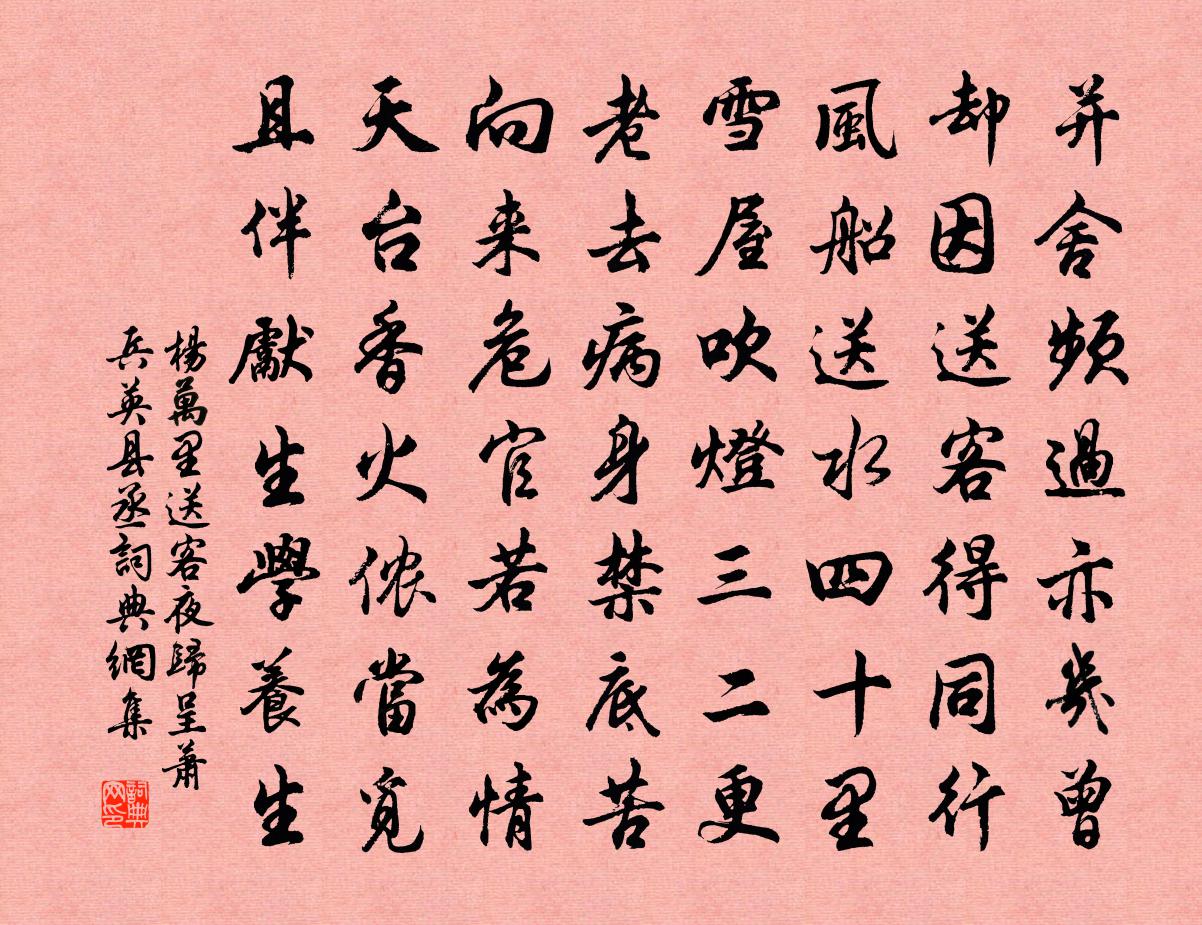 并舍頻過亦幾曾
却因送客得同行
風船送水四十里
雪屋吹燈三二更
老去病身禁底苦
向来危官若為情
天台香火侬當覓
且伴獻生學養生
楊萬里送客夜歸呈蕭
兵英县丞詞典網集
詞典网印